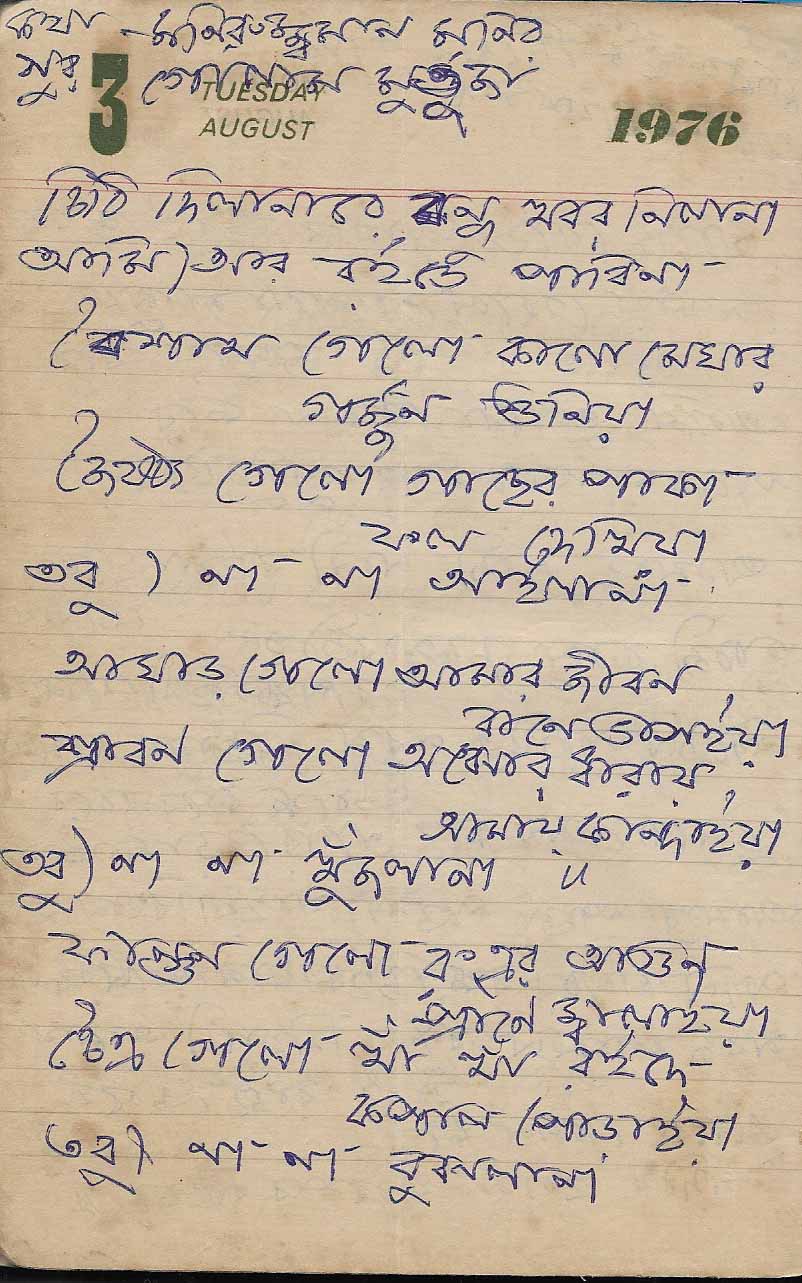 কথা - মনিরুজ্জমান মনির
সুর গোলাম মুর্তুজা
3 TUESDAY
AUGUST 1976
চিঠি দিলানারে বন্ধু খবর নিলানা
আমি) আর রইতে পারিনা
বৈশাখ গেলো কালো মেঘের
গর্জন শুনিয়া
জৈষ্ঠ্য গেলো গাছের পাকা
ফল দেখিয়া
তবু) না না আইলানা
আষাঢ় গেলো আমার জীবন
বানে ভাসাইয়া
শ্রাবন গেলো অঝোর ধারায়,
আমায় কান্দাইয়া
তবু) না না খুঁজলানা ॥
ফাল্গুন গেলো রংএর আগুন
প্রানে জ্বালাইয়া
চৈত্র গেলো খাঁ খাঁ রইদে
কপাল পোড়াইয়া
তবু) না না বুঝলানা